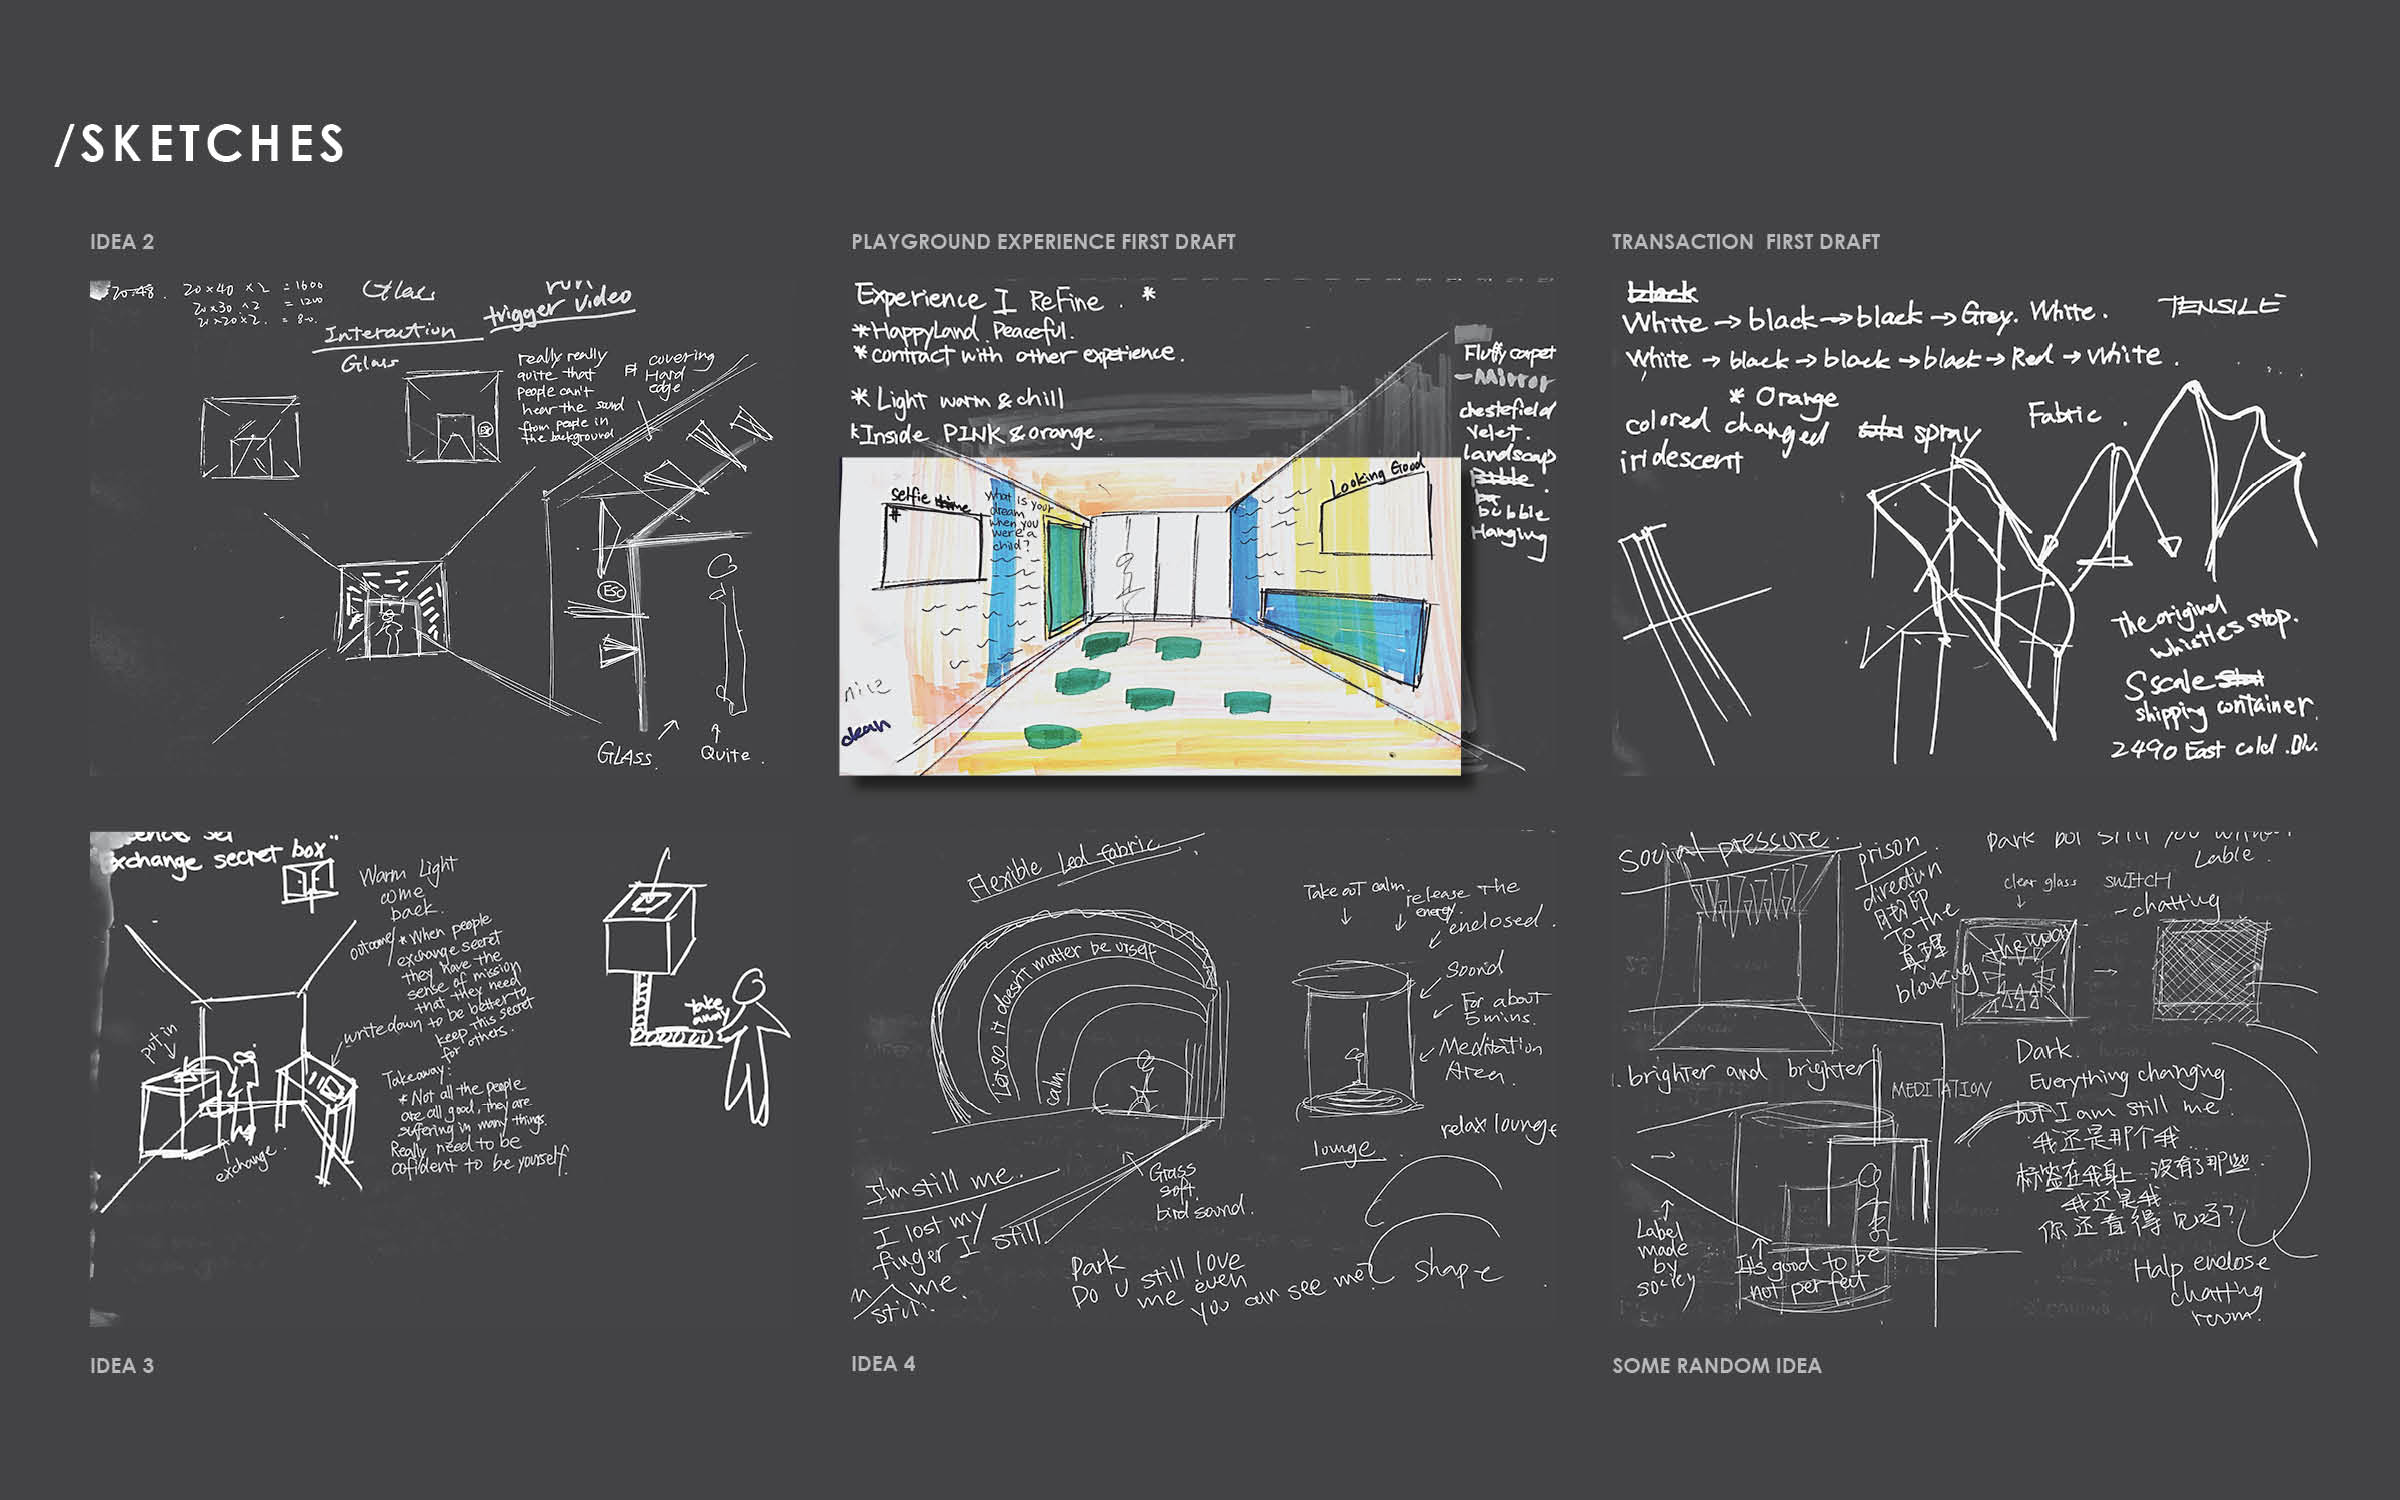 /SKETCHES
IDEA 2
20.48.
20×40 ×2 = 1600
20×30 ×2 = 1200
20×20×2. = 80.
Glass
run
trigger video
Interaction
Glass
really really
quite that
people can't
hear the sound
from people in
the background
covering
Hard
edge.
Esc
Esc
GLASS.
Quite.
PLAYGROUND EXPERIENCE FIRST DRAFT
Experience I ReFine. *
*HappyLand. Peaceful.
*contract with other experience.
* Light warm & chill
*Inside PINK & orange.
Fluffy carpet
- Mirror
chestefield
velet.
landscap
bubble
Hanging
selfie time
#
What is your
dream
when you
were a
child?
Looking Good
nice
clean
TRANSACTION FIRST DRAFT
black
White → black → black → Grey. White.
White → black → black → black → Red → White.
TENSILE
* Orange
colored changed spray
iridescent
Fabric.
The original
whistles stop.
Sscale
shipping container.
2490 East
exchange secret box"
Warm Light
come
back.
outcome/ *When people
exchange secret
they have the
sense of mission
that they need
to be better to
keep this secret
for others.
write down
put in
exchange.
Takeaway:
* Not all the people
are all good, they are
suffering in many things.
Really need to be
cofident to be yourself.
take
away
IDEA 3
Flexible Led fabric
Let go, it doesn't matter be urself
calm.
Take out calm.
release The
energy.
enclosed.
Soond
For about
5 mins.
Meditation
Area.
lounge
relax lounge
Grass
soft.
bird sound.
I'm still me..
I lost my
finger I still
me
still.
Park
Do u still love
me even
you can see me?
shape
IDEA 4
Social pressure.
prison.
direction
To the
真理
blocking
Park but still you without
Lable.
clear glass
SWITCH
- chatting
the way.
brighter and brighter
MEDITATION
Dark.
Everything changing.
but I am still me.
我还是那个我
标签在我身上..没有了那些.
我还是我
你还看得见吗?
Label
made
by
socity
It's good to be
not perfect
Halp enclose
chatting
room.
SOME RANDOM IDEA